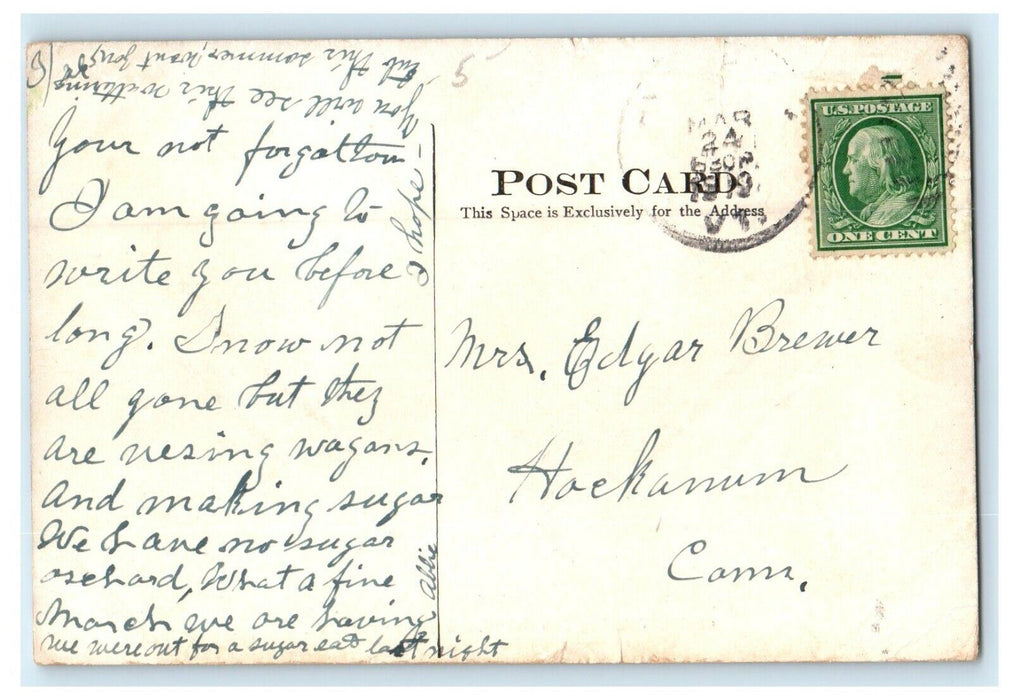 Your not forgotton
I am going to
write you before
long. Snow not
all gone but they
are uesing wagons.
And making sugar
We have no sugar
orchard, What a fine
March we are having
we were out for a sugar eat last night
Allie
I hope
you will see this
but this sommer, wont you
5
POST CARD
This Space is Exclusively for the Address
MAR
24
VT.
U.S. POSTAGE
ONE CENT
Mrs. Edgar Brewer
Hockanum
Conn.